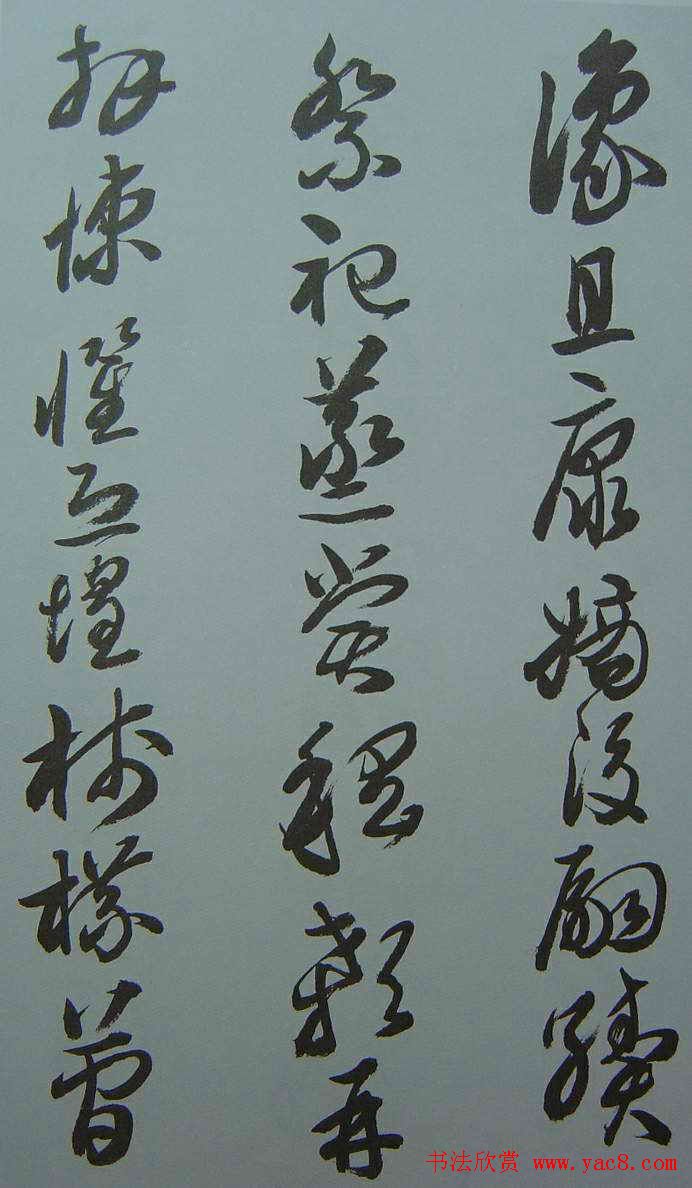 豫且康嫡後嗣續
祭祀蒸嘗稽顙再
拜悚懼恐惶牋牒簡
书法欣赏 www.yac8.com